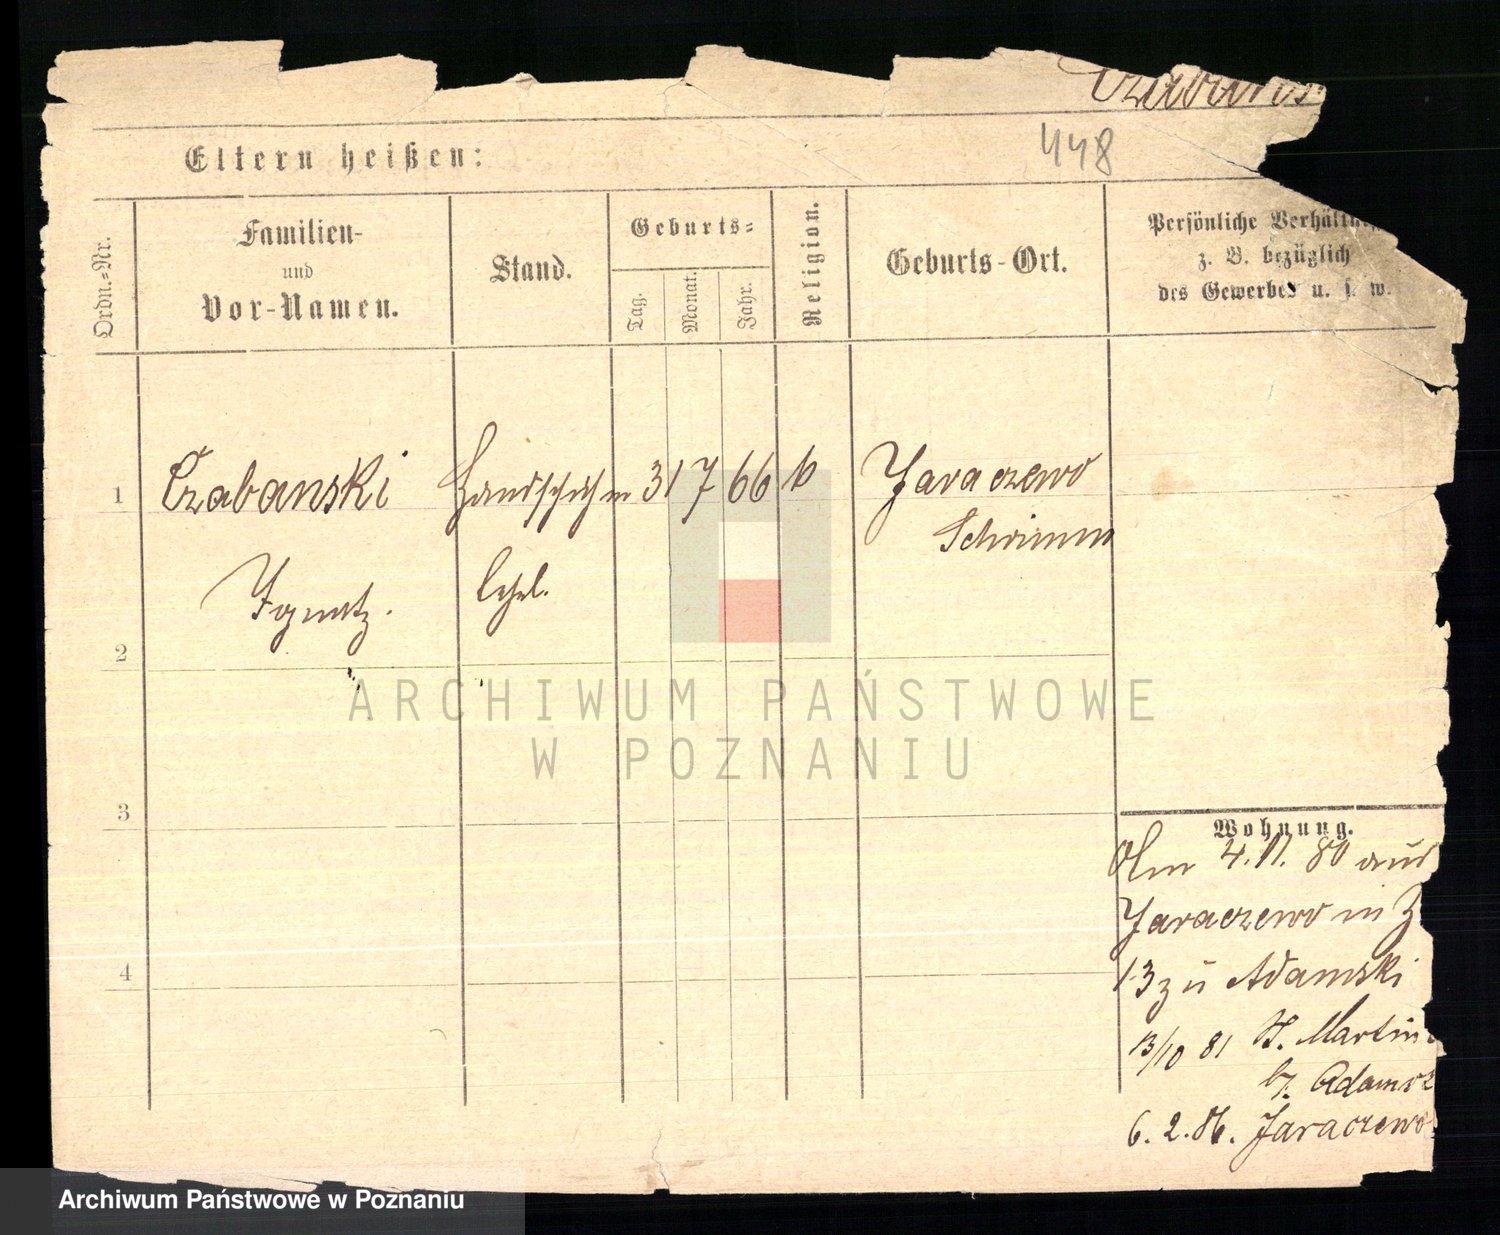 Czabans
448
Eltern heißen:
Ordn.-Nr.
Familien-
und
Vor-Namen.
Stand.
Geburts-
Tag.
Monat.
Jahr.
Religion.
Geburts-Ort.
Persönliche Verhältn
z. B. bezüglich
des Gewerbes u. s. w.
1 Czabanski 31 7 66 Jaraczewo
Schrimm
Ignatz.
2
3
4
Wohnung.
4. 11. 80 aus
Jaraczewo in
13 zu Adamski
13/10 81 St. Martin
b. Adamsk
6. 2. 86. Jaraczewo
ARCHIWUM PAŃSTWOWE
W POZNANIU
Archiwum Państwowe w Poznaniu